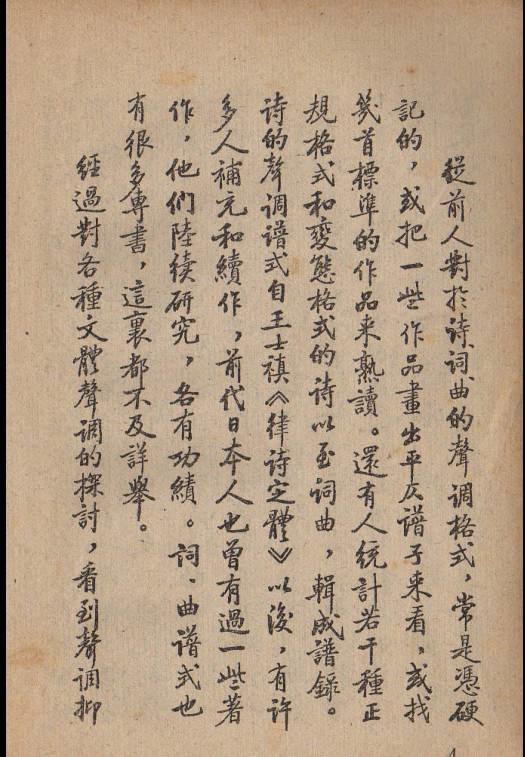 從前人對於詩詞曲的聲調格式，常是憑硬
記的，或把一些作品畫出平仄譜子來看，或找
幾首標準的作品来熟讀。還有人統計若干種正
規格式和變態格式的詩以至詞曲，輯成譜錄。
詩的聲调谱式自王士禛《律诗定體》以後，有許
多人補充和續作，前代日本人也曾有過一些著
作，他們陸续研究，各有功績。詞、曲譜式也
有很多專書，這裏都不及詳舉。
經過對各種文體聲調的探討，看到聲调抑